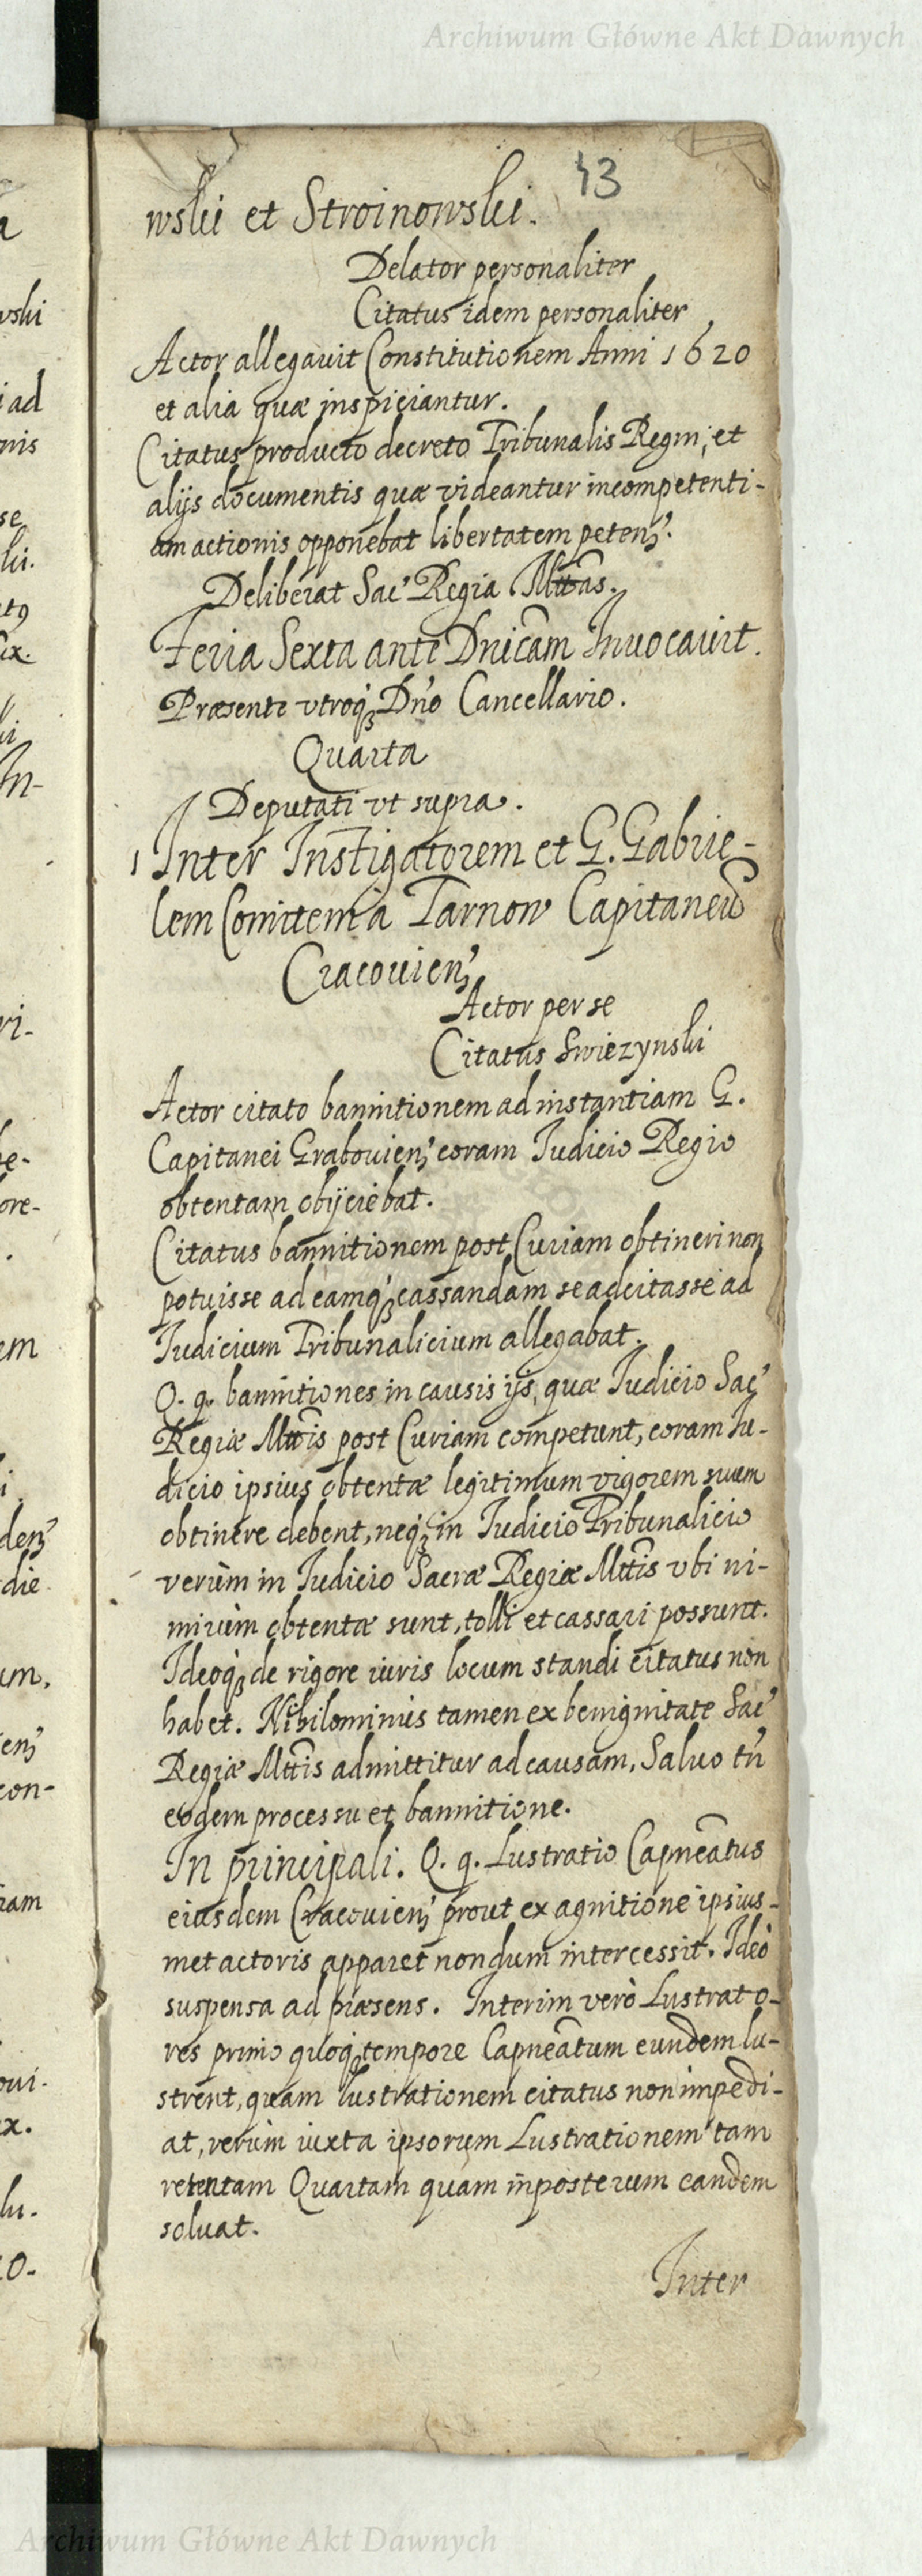 Archiwum Główne Akt Dawnych
43
wski et Stroinowski.
Delator personaliter
Citatus idem personaliter
Actor allegauit Constitutionem Anni 1620
et alia quæ inspiciantur.
Citatus producto decreto Tribunalis Regni, et
alijs documentis quæ videantur incompetenti-
am actionis opponebat libertatem petenʒ.
Deliberat Sac' Regia Mttas.
Feria Sexta ante Dnicam Inuocauit.
Præsente vtroqʒ Dno Cancellario.
Quarta
Deputati vt supra.
1 Inter Instigatorem et G. Gabrie-
lem Comitem a Tarnow Capitaneū
Cracouienʒ
Actor per se
Citatus Swiezynski
Actor citato bannitionem ad instantiam G.
Capitanei Grabouienʒ coram Iudicio Regio
obtentam obijciebat.
Citatus bannitionem post Curiam obtineri non
potuisse ad eamqʒ cassandam se adcitasse ad
Iudicium Tribunalicium allegabat.
Q. q. bannitiones in causis ijs, quæ Iudicio Sac'
Regiæ Mttis post Curiam competunt, coram Iu-
dicio ipsius obtentæ legitimum vigorem suum
obtinere debent, neqʒ in Iudicio Tribunalicio
verùm in Iudicio Sacræ Regiæ Mttis vbi ni-
mirùm obtentæ sunt, tolli et cassari possunt.
Ideoqʒ de rigore iuris locum standi citatus non
habet. Nihilominus tamen ex benignitate Sac'
Regiæ Mttis admittitur ad causam, Saluo tn̄
eodem processu et bannitione.
In principali. Q. q. Lustratio Capneatus
eiusdem Cracouienʒ prout ex agnitione ipsius-
met actoris apparet nondum intercessit. Ideò
suspensa ad præsens. Interim verò Lustrato-
res primo quoqʒ tempore Capneatum eundem lu-
strent, quam lustrationem citatus non impedi-
at, verùm iuxta ipsorum Lustrationem tam
retentam Quartam quam inposterum eandem
soluat.
Inter
Archiwum Główne Akt Dawnych